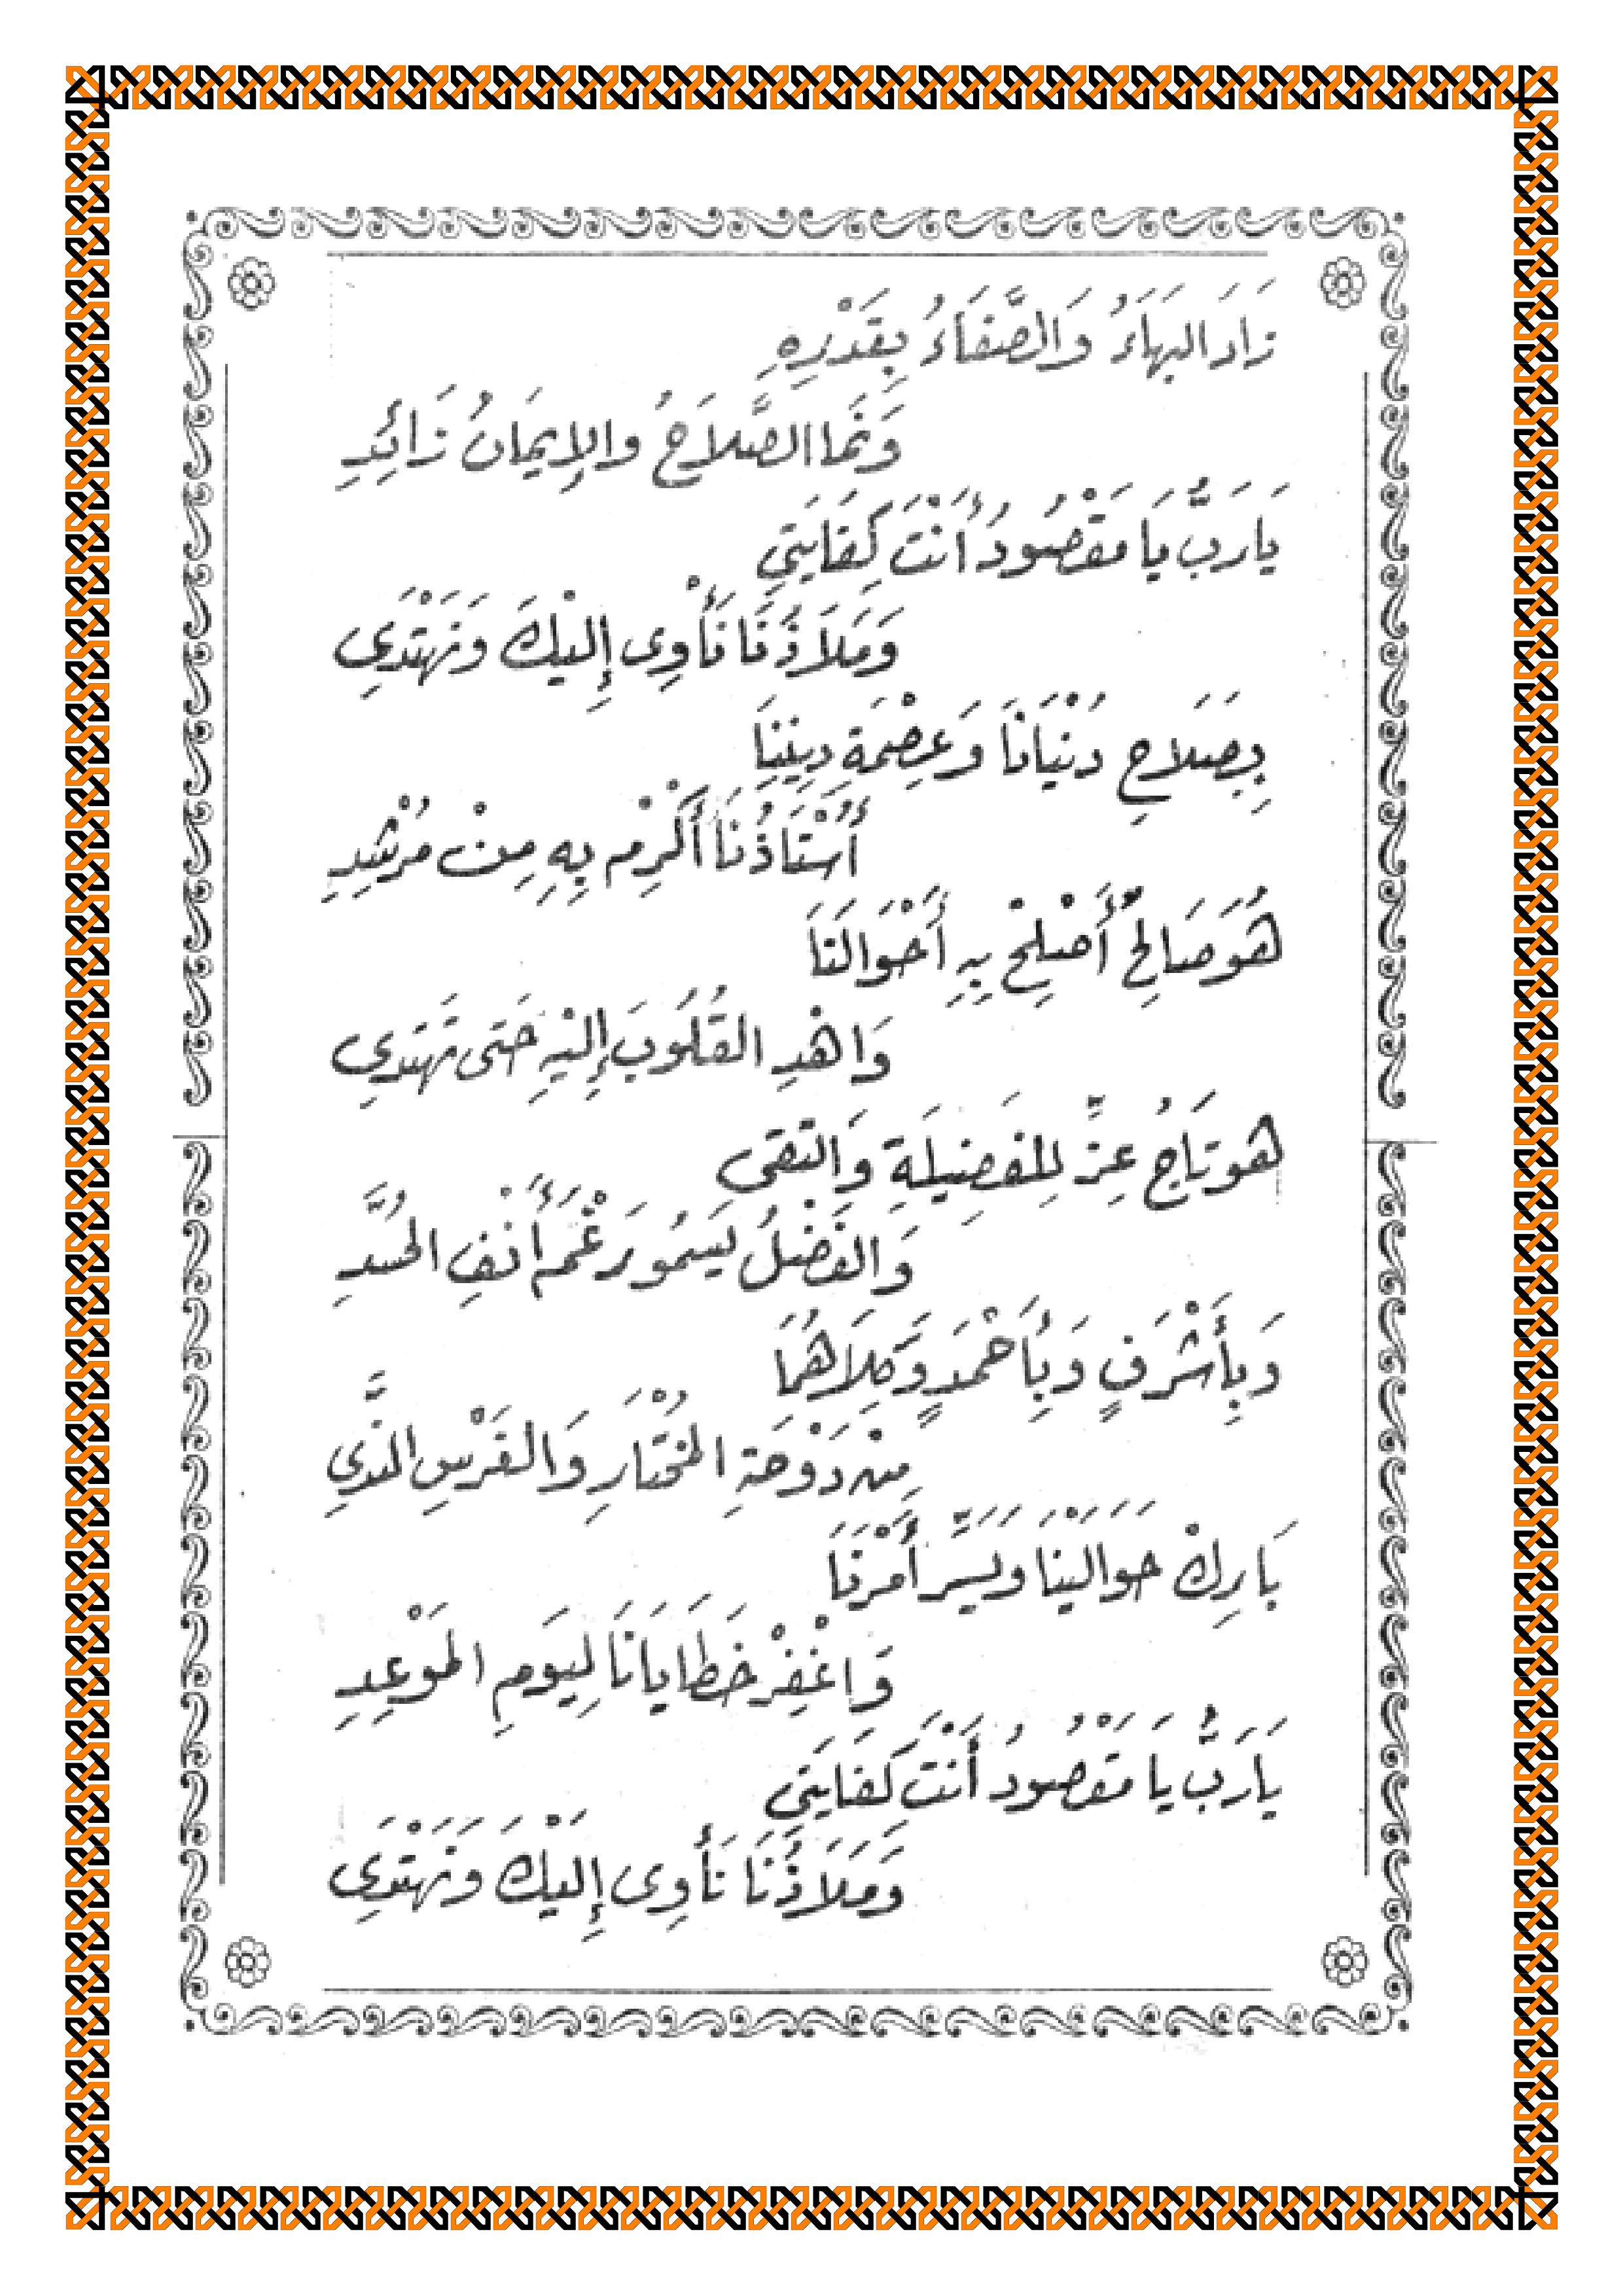 زَادَ البَهَاءُ وَالصَّفَاءُ بِقَدْرِهِ
وَنَمَا الصَّلاَحُ والإِيمَانُ زَائِدِ
يَارَبُّ يَا مَقْصُودُ أَنْتَ كِفَايَتِي
وَمَلاَذُنَا نَأْوِى إِلَيْكَ وَنَهْتَدِي
بِصَلاحِ دُنْيَانَا وَعِصْمَةِ دِينِنَا
أُسْتَاذُنَا أَكْرِمْ بِهِ مِنْ مُرْشِدِ
هُوَ صَالِحٌ أَصْلِحْ بِهِ أَحْوَالَنَا
وَاهْدِ القُلُوبَ إِلَيْهِ حَتَى تَهْتَدِي
هو تَاجُ عِزٍّ لِلفَضِيلَةِ وَالتُّقَى
وَالفَضْلُ يَسْمُو رَغْمَ أَنْفِ الحُسَّدِ
وَبِأَشْرَفٍ وَبِأَحْمَدٍ وَكِلاَهُمَا
مِنْ دَوْحَةِ المُخْتَارِ وَالفَرْسِ النَّدِي
بَارِكْ حَوَالَيْنَا وَيَسِّرْ أَمْرَنَا
وَاغْفِرْ خَطَايَانَا لِيَومِ المَوْعِدِ
يَارَبُّ يَا مَقْصُودُ أَنْتَ كَفَايَتِي
وَمَلاَذُنَا نَأْوِى إِلَيْكَ وَنَهْتَدِي